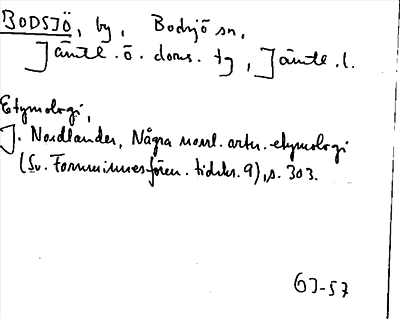 BODSJÖ, by, Bodsjö sn,
Jämtl. ö. doms. tg, Jämtl. l.
Etymologi,
J. Nordlander, Några norrl. ortn. etymologi
(Sv. Fornminnesfören. tidskr. 9), s. 303.
GJ-57